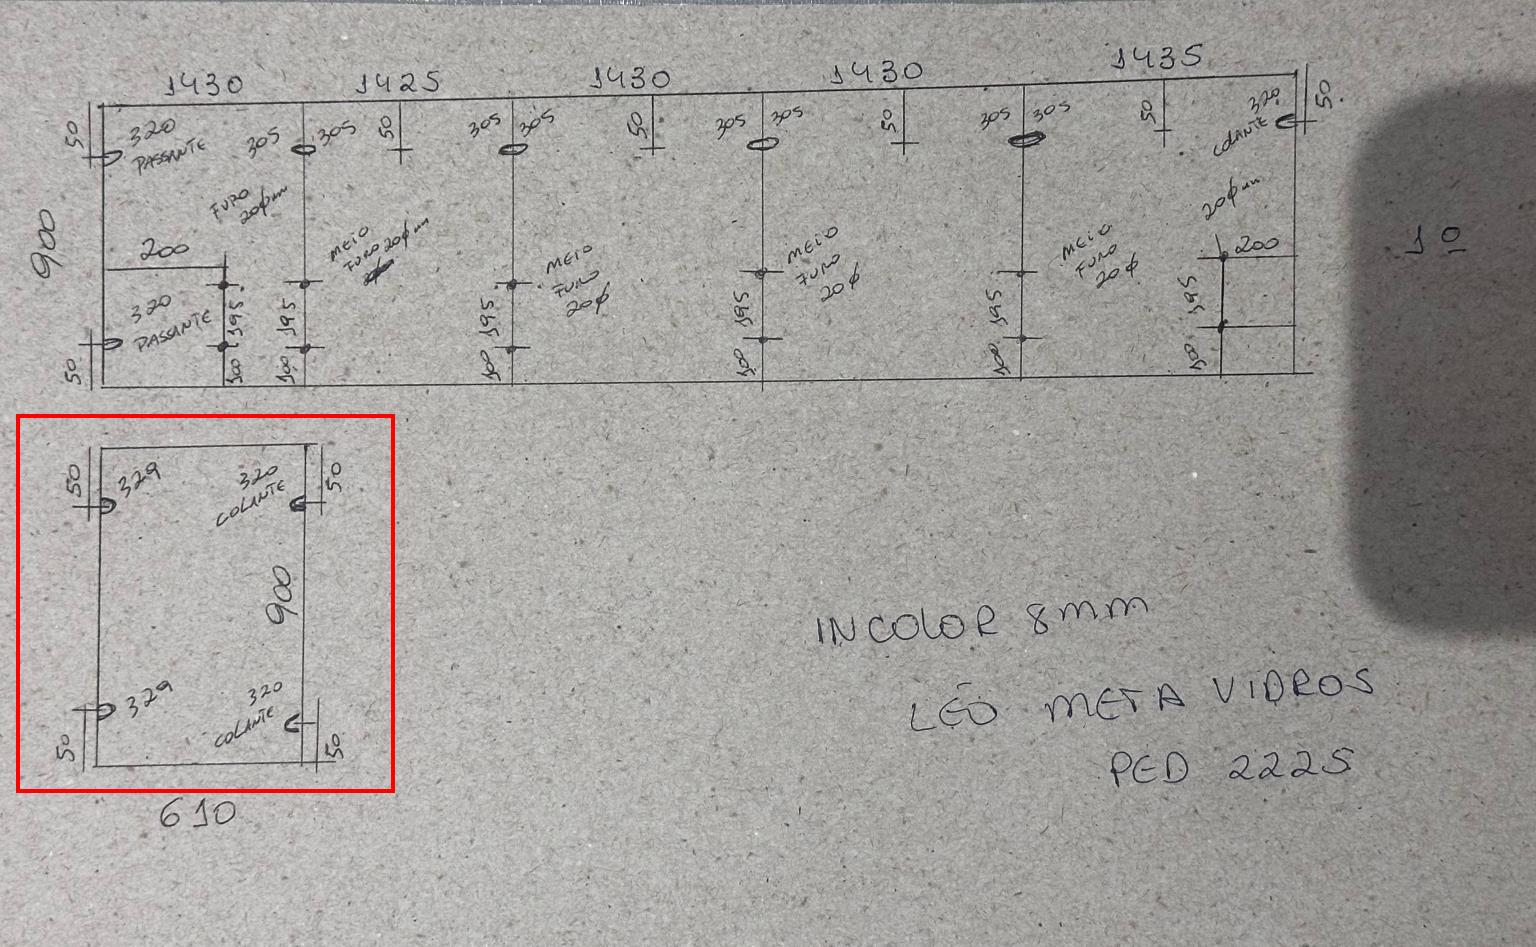 1430 1425 1430 1430 1435
50 320 PASSANTE 305 305 50 305 305 50 305 305 50 305 305 50 320 COLANTE 50
FURO 20ϕmm
MEIO FURO 20ϕmm
MEIO FURO 20ϕ
MEIO FURO 20ϕ
MEIO FURO 20ϕ
20ϕmm
900
200
200
10
320 PASSANTE
195 195 195 195 195 195
50 100 100 100 100 100 100
50 329
320 COLANTE 50
900
329
320 COLANTE
50 50
610
INCOLOR 8mm
LÉO META VIDROS
PED 2225